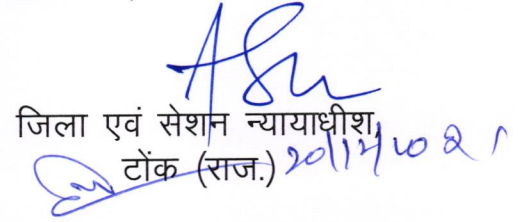 जिला एवं सेशन न्यायाधीश,
टोंक (राज.) 20/12/2021